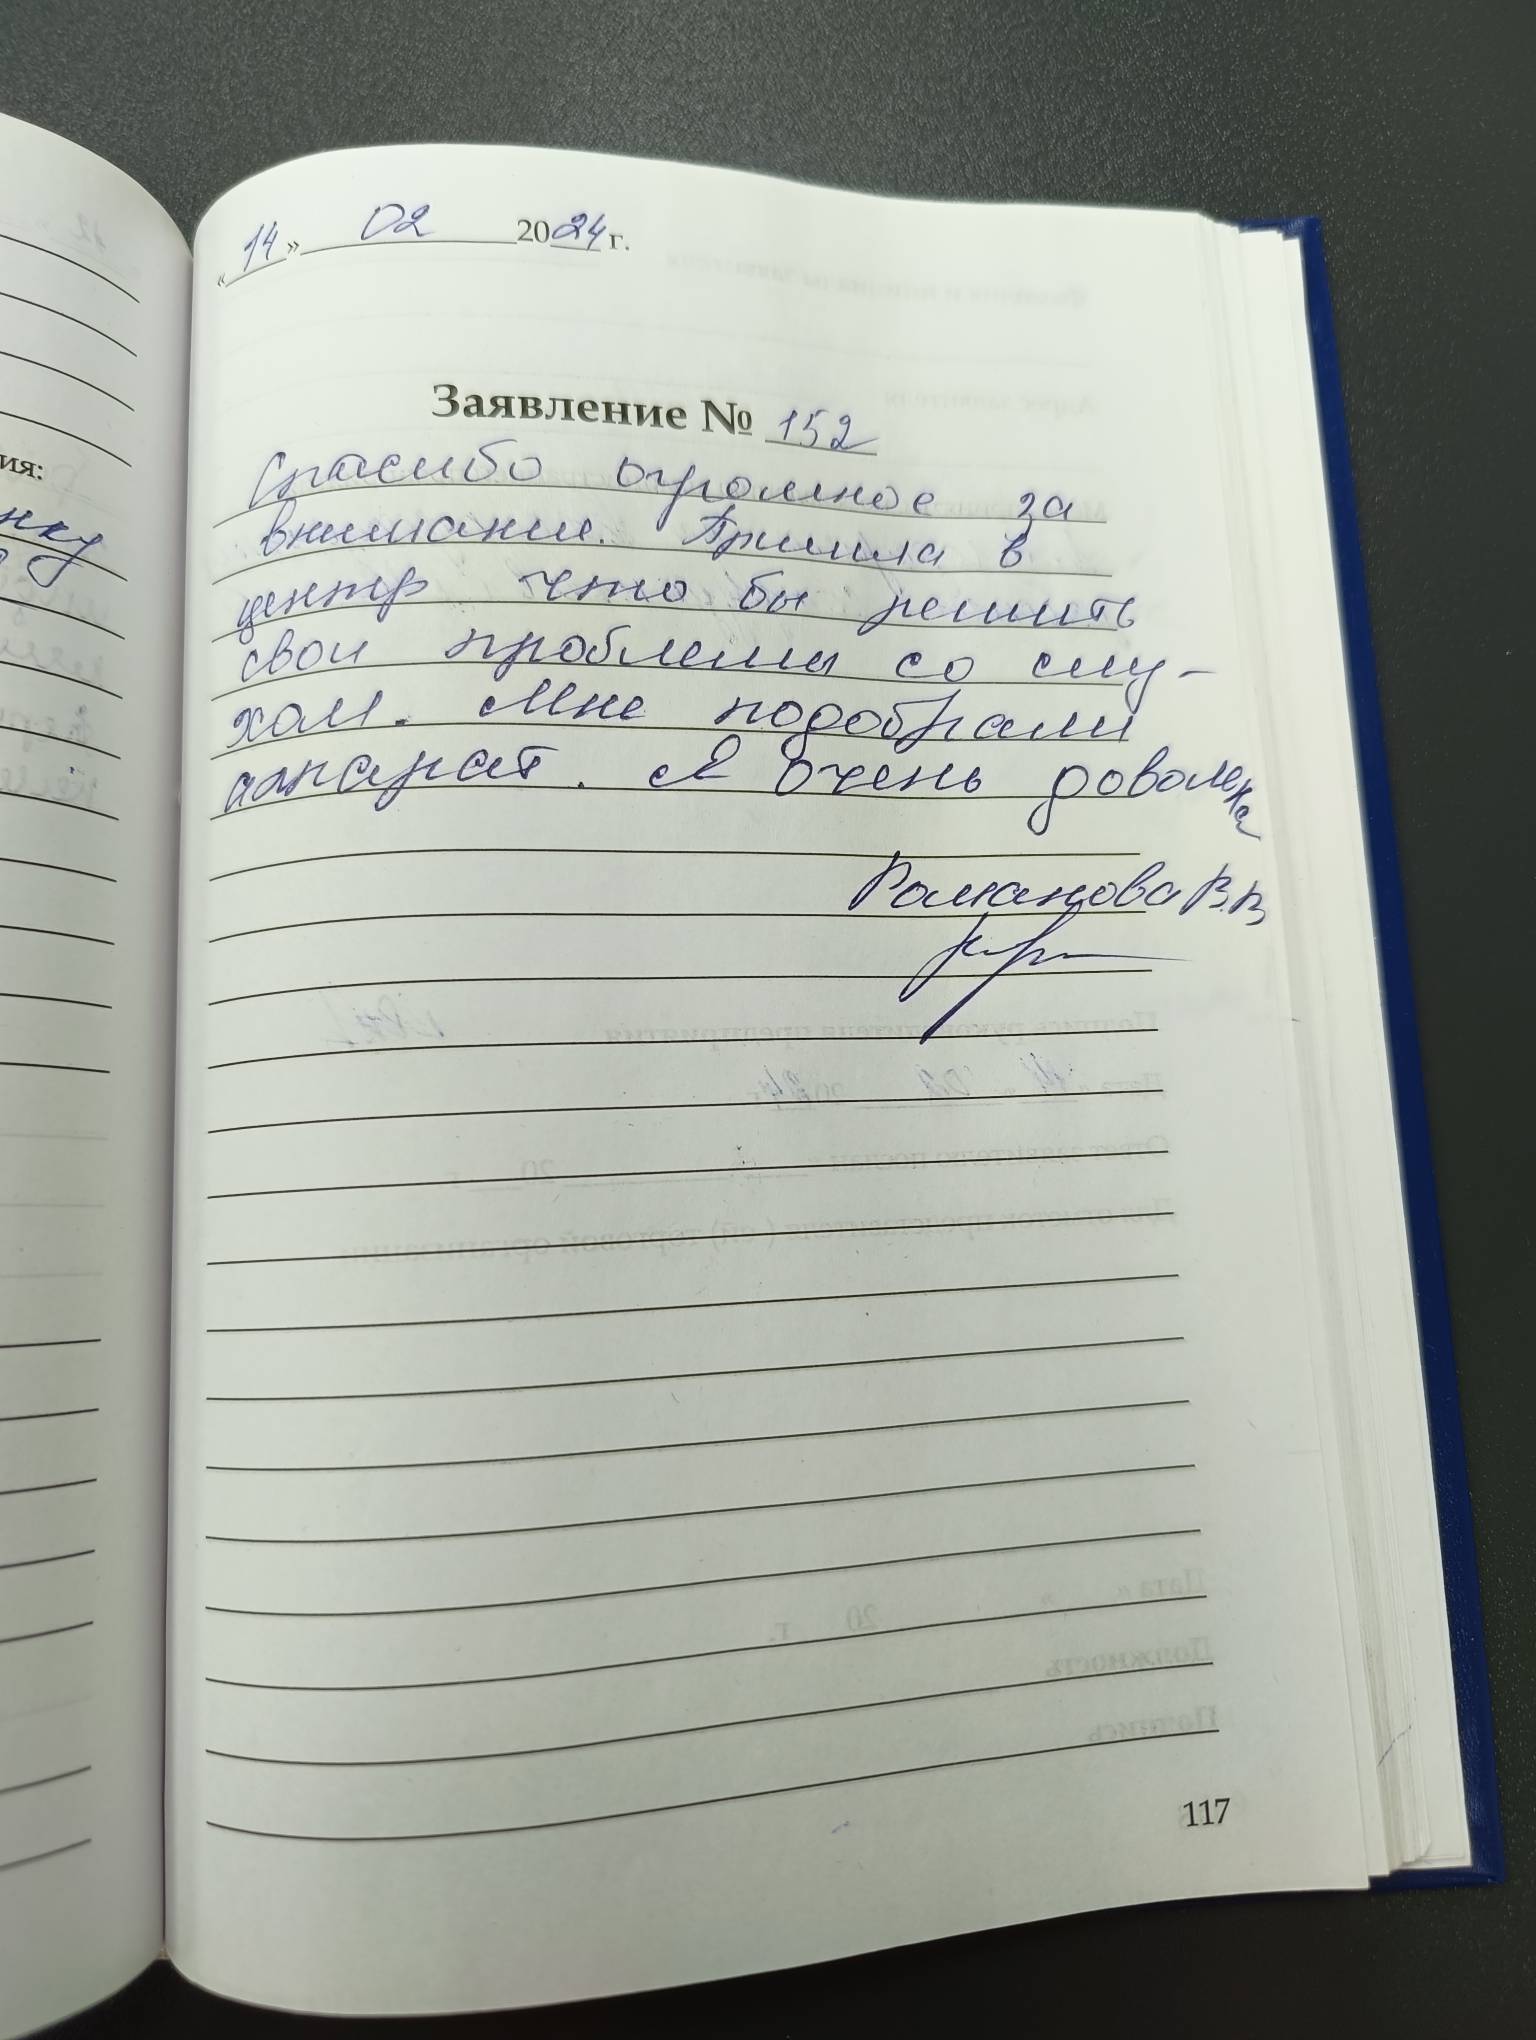 «14» 02 2024 г.
Заявление № 152
Спасибо огромное за
внимание. Пришла в
центр что бы решить
свои проблемы со слу-
хом. Мне подобрали
аппарат. Я очень довольна
Романова В.В
ия:
нку
117